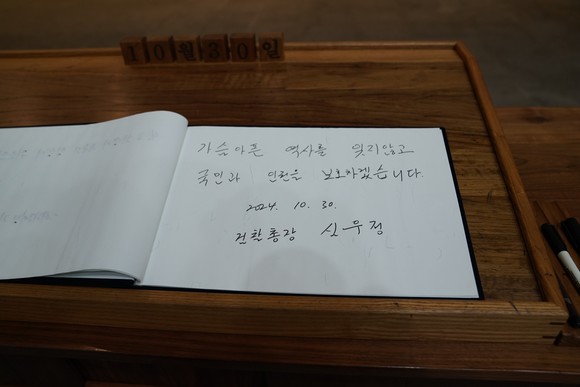 10월30일
가슴아픈 역사를 잊지않고
국민과 인권을 보호하겠습니다.
2024. 10. 30.
검찰총장 심우정